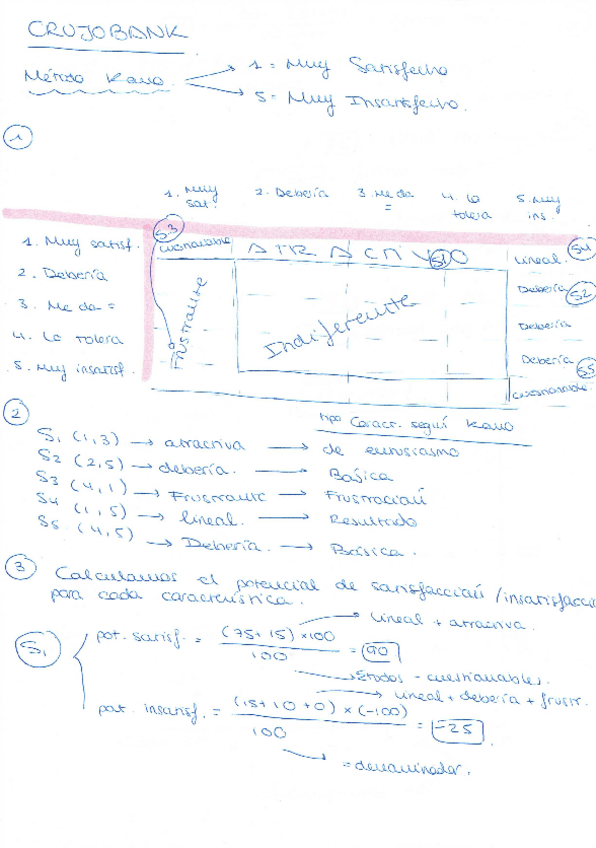 CRUJOBANK
Método Kano
1 = Muy Satisfecho
5 = Muy Insatisfecho.
1
1. Muy sat. 2. Debería 3. Me da = 4. Lo tolera 5. Muy ins.
1. Muy satisf. cuestionable S.3 ATRACTIVO S1 Lineal S4
2. Debería Debería S2
3. Me da = Frustrante Indiferente Debería
4. Lo tolera Debería S5
5. Muy insatisf. cuestionable
2
tipo Caract. según Kano
S1 (1,3) → atractiva → de entusiasmo
S2 (2,5) → debería. → Básica
S3 (4,1) → Frustrante → Frustración
S4 (1,5) → lineal. → Resultado
S5 (4,5) → Debería. → Básica.
3 Calculamos el potencial de satisfacción /insatisfacci
para cada característica.
→ Lineal + atractiva.
S1 pot. satisf. = (75+15) ×100 / 100 = 90
→ Σtodos - cuestionables.
→ Lineal + debería + frustr.
pot. insatisf. = (15+10+0) × (-100) / 100 = -25
→ = denominador.